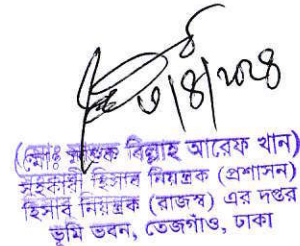 ৩/৪/২০২৪
(মোঃ মাশুক বিল্লাহ আরেফ খান)
সহকারী হিসাব নিয়ন্ত্রক (প্রশাসন)
হিসাব নিয়ন্ত্রক (রাজস্ব) এর দপ্তর
ভূমি ভবন, তেজগাঁও, ঢাকা